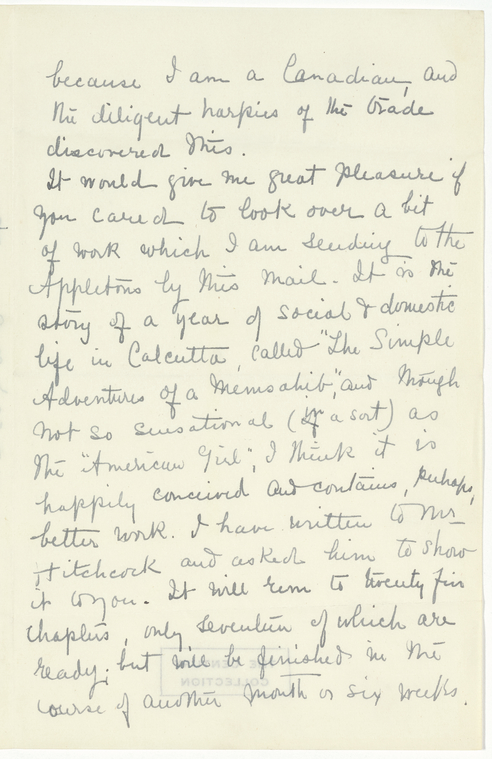 because I am a Canadian, and
the diligent harpies of the trade
discovered this.
It would give me great pleasure if
you cared to look over a bit
of work which I am sending to the
Appletons by this mail. It is the
story of a year of social & domestic
life in Calcutta, called "The Simple
Adventures of a Memsahib", and though
not so sensational (in a sort) as
the "American Girl", I think it is
happily conceived and contains, perhaps,
better work. I have written to Mr
Hitchcock and asked him to show
it to you. It will run to twenty five
chapters, only seventeen of which are
ready; but will be finished in the
course of another month or six weeks.
COLLECTION